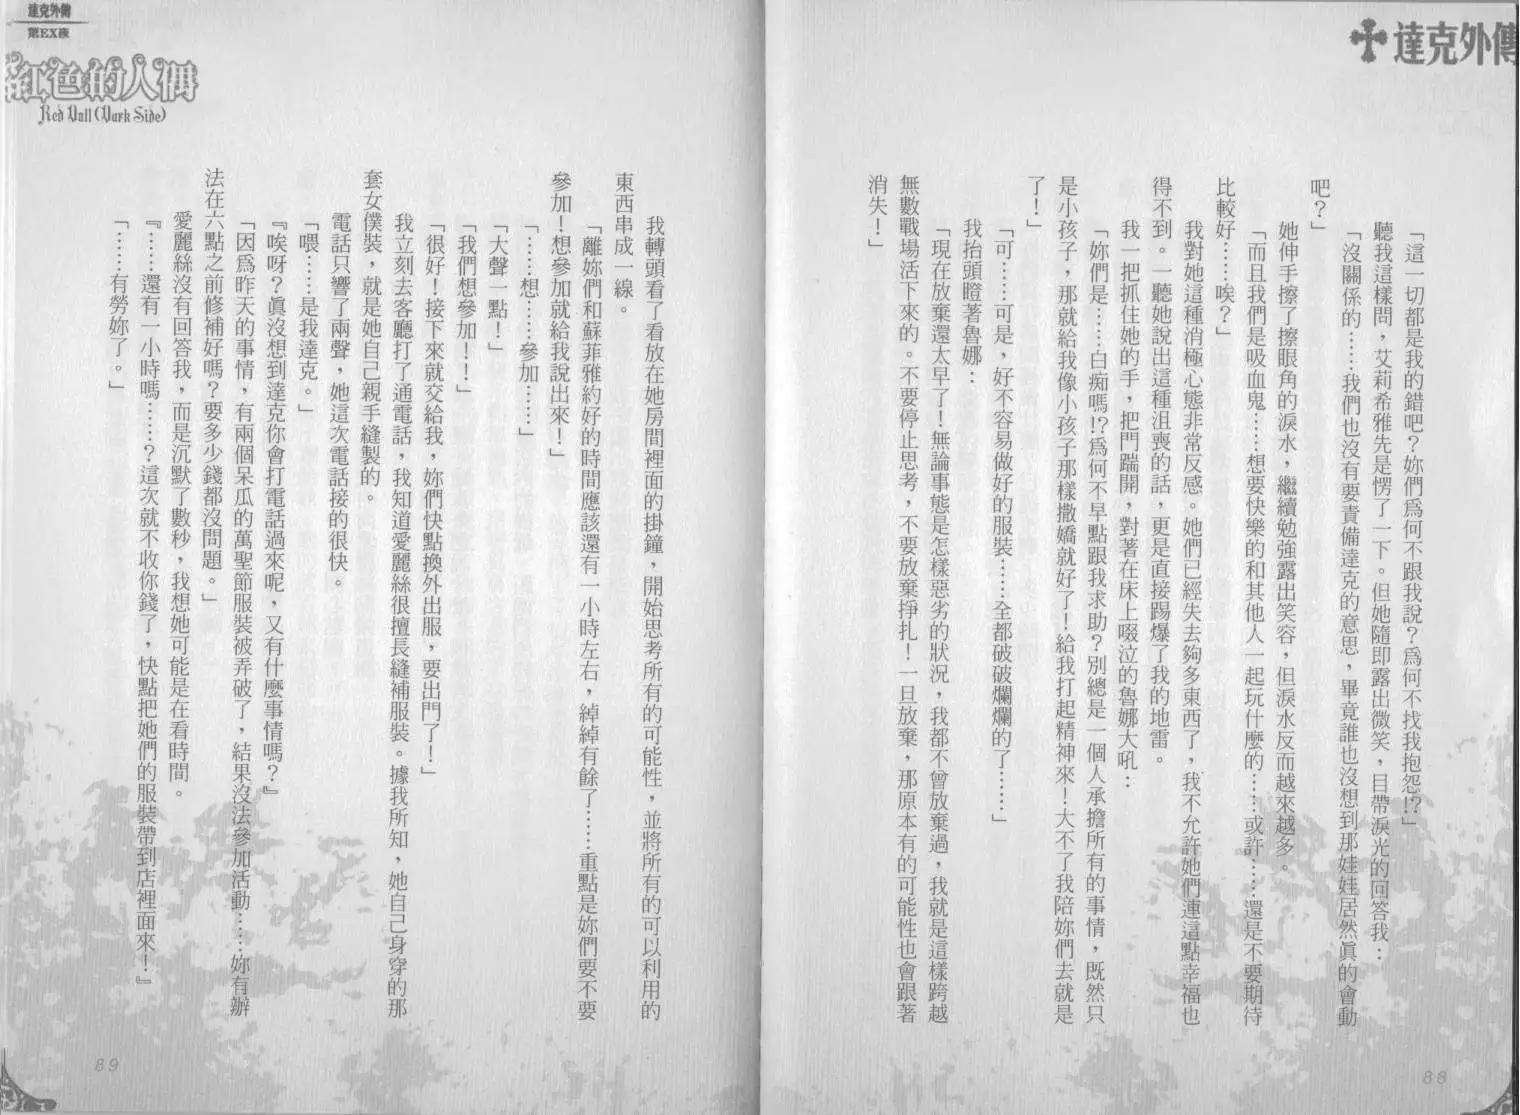 達克外傳
「這一切都是我的錯吧？妳們爲何不跟我說？爲何不找我抱怨!?」
聽我這樣問，艾莉希雅先是愣了一下。但她隨即露出微笑，目帶淚光的回答我：
「沒關係的……我們也沒有要責備達克的意思，畢竟誰也沒想到那娃娃居然眞的會動
吧？」
她伸手擦了擦眼角的淚水，繼續勉強露出笑容，但淚水反而越來越多。
「而且我們是吸血鬼……想要快樂的和其他人一起玩什麼的……或許……還是不要期待
比較好……唉？」
我對她這種消極心態非常反感。她們已經失去夠多東西了，我不允許她們連這點幸福也
得不到。一聽她說出這種沮喪的話，更是直接踢爆了我的地雷。
我一把抓住她的手，把門踹開，對著在床上啜泣的魯娜大吼：
「妳們是……白痴嗎!?爲何不早點跟我求助？別總是一個人承擔所有的事情，既然只
是小孩子，那就給我像小孩子那樣撒嬌就好了！給我打起精神來！大不了我陪妳們去就是
了！」
「可……可是，好不容易做好的服裝……全都破破爛爛的了……」
我抬頭瞪著魯娜：
「現在放棄還太早了！無論事態是怎樣惡劣的狀況，我都不會放棄過，我就是這樣跨越
無數戰場活下來的。不要停止思考，不要放棄掙扎！一旦放棄，那原本有的可能性也會跟著
消失！」
88
達克外傳
第EX夜
紅色的人偶
Red Doll (Dark Side)
我轉頭看了看放在她房間裡面的掛鐘，開始思考所有的可能性，並將所有的可以利用的
東西串成一線。
「離妳們和蘇菲雅約好的時間應該還有一小時左右，綽綽有餘了……重點是妳們要不要
參加！想參加就給我說出來！」
「……想……參加……」
「大聲一點！」
「我們想參加！！」
「很好！接下來就交給我，妳們快點換外出服，要出門了！」
我立刻去客廳打了通電話，我知道愛麗絲很擅長縫補服裝。據我所知，她自己身穿的那
套女僕裝，就是她自己親手縫製的。
電話只響了兩聲，她這次電話接的很快。
「喂……是我達克。」
『唉呀？眞沒想到達克你會打電話過來呢，又有什麼事情嗎？』
「因爲昨天的事情，有兩個呆瓜的萬聖節服裝被弄破了，結果沒法參加活動……妳有辦
法在六點之前修補好嗎？要多少錢都沒問題。」
愛麗絲沒有回答我，而是沉默了數秒，我想她可能是在看時間。
『……還有一小時嗎……？這次就不收你錢了，快點把她們的服裝帶到店裡面來！』
「……有勞妳了。」
89